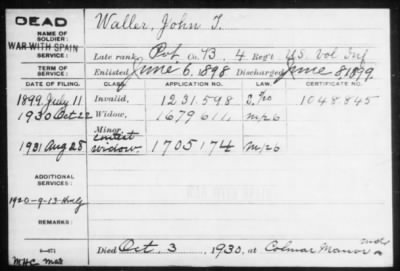 DEAD
NAME OF SOLDIER:
Waller, John T.
WAR WITH SPAIN
SERVICE:
Late rank, Pvt Co. B. 4 Reg't US Vol Inf
TERM OF SERVICE:
Enlisted June 6, 1898 Discharged June 8, 1899
DATE OF FILING. CLASS. APPLICATION NO. LAW. CERTIFICATE NO.
1899 July 11 Invalid, 1231598 1048845
1930 Oct 22 Widow, 1679611 m/26
Minor,
contest
1931 Aug 28 widow 1705174 m/26
ADDITIONAL SERVICES:
1920-9-13
REMARKS:
Died Oct. 3, 1930, at Colmar Manor Md
MHC